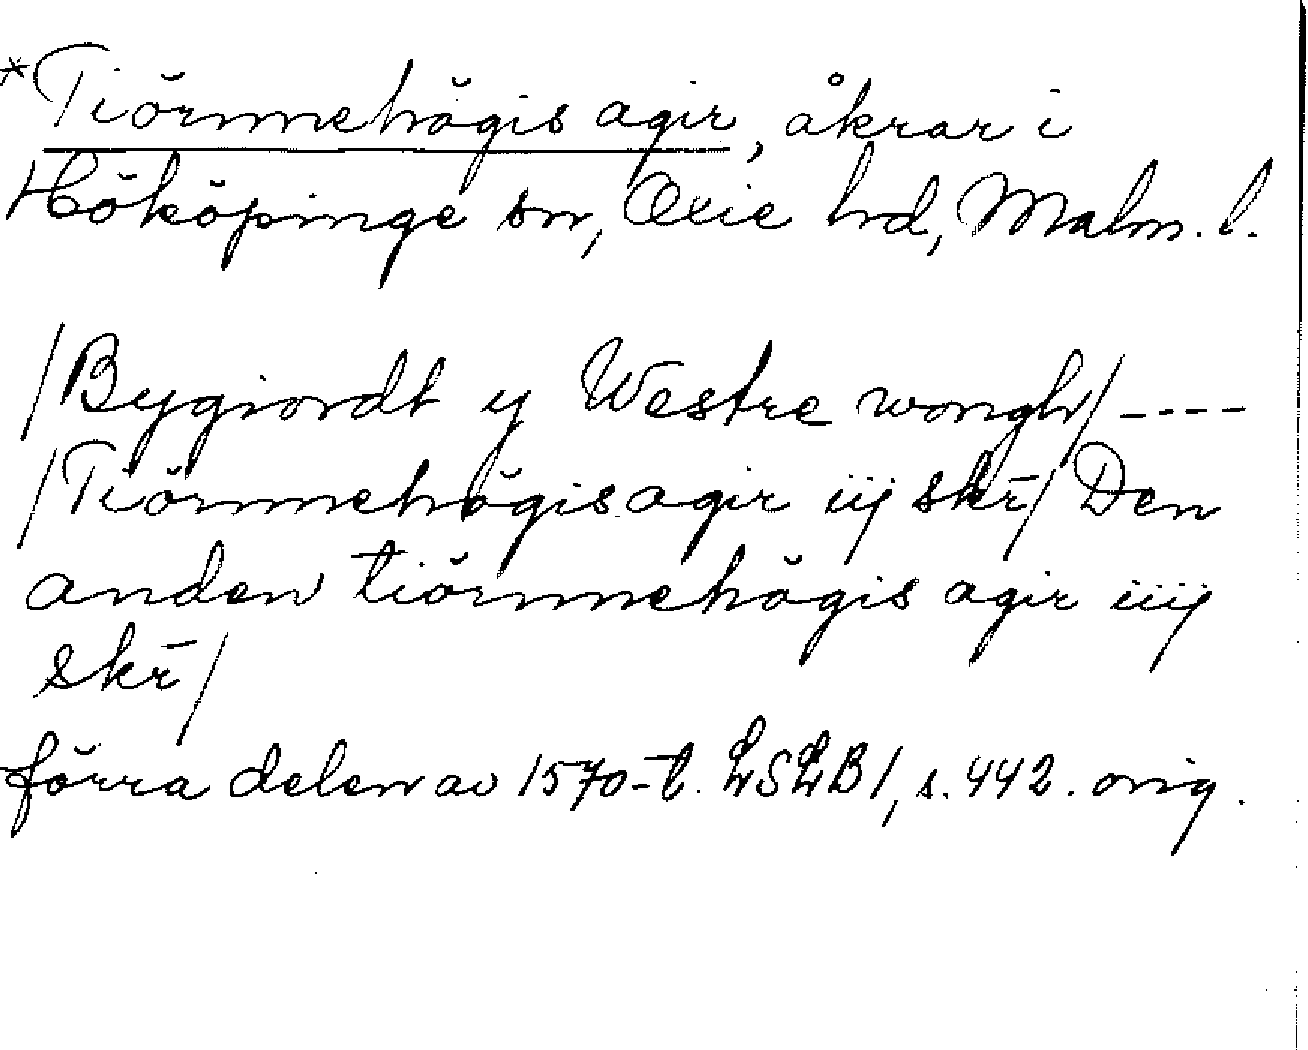 *Tiörnnehögis agir, åkrar i
Hököpinge sn, Oxie hd, Malm. l.
/Bygiordt y Westre wongh/ ----
/Tiörnnehögis agir iij skr̄/ Den
anden tiörnnehögis agir iiij
skr̄/
förra delen av 1570-t. LSLB 1, s. 442. orig.